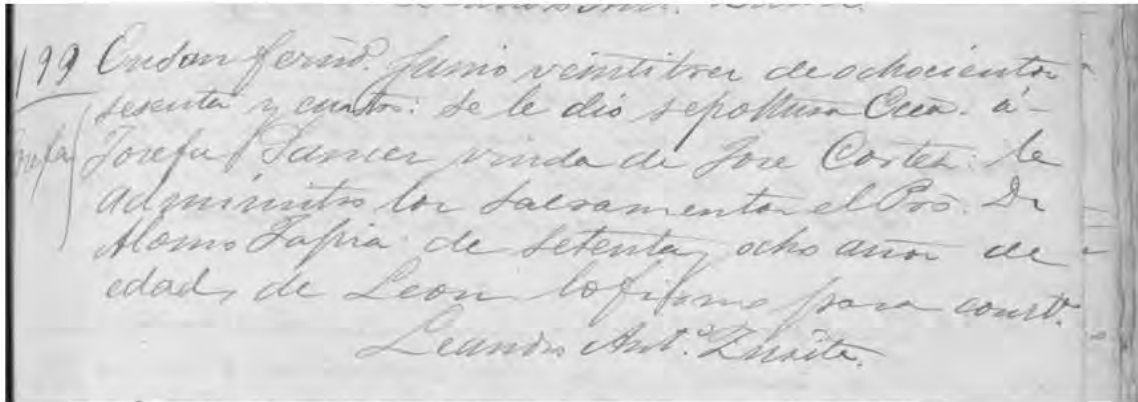 199 En San Fernd. Junio veintitres de ochocientos
sesenta y cuatro: se le dio sepoltura Ccca. á
Josefa Josefa viuda de Jose Cortes: le
administro los Salsamentos el Pro. Dr
Alonso Tapia de setenta y ocho años de
edad, de Leon lo firmo para const.ª
Leandro Ant.º Zurita.